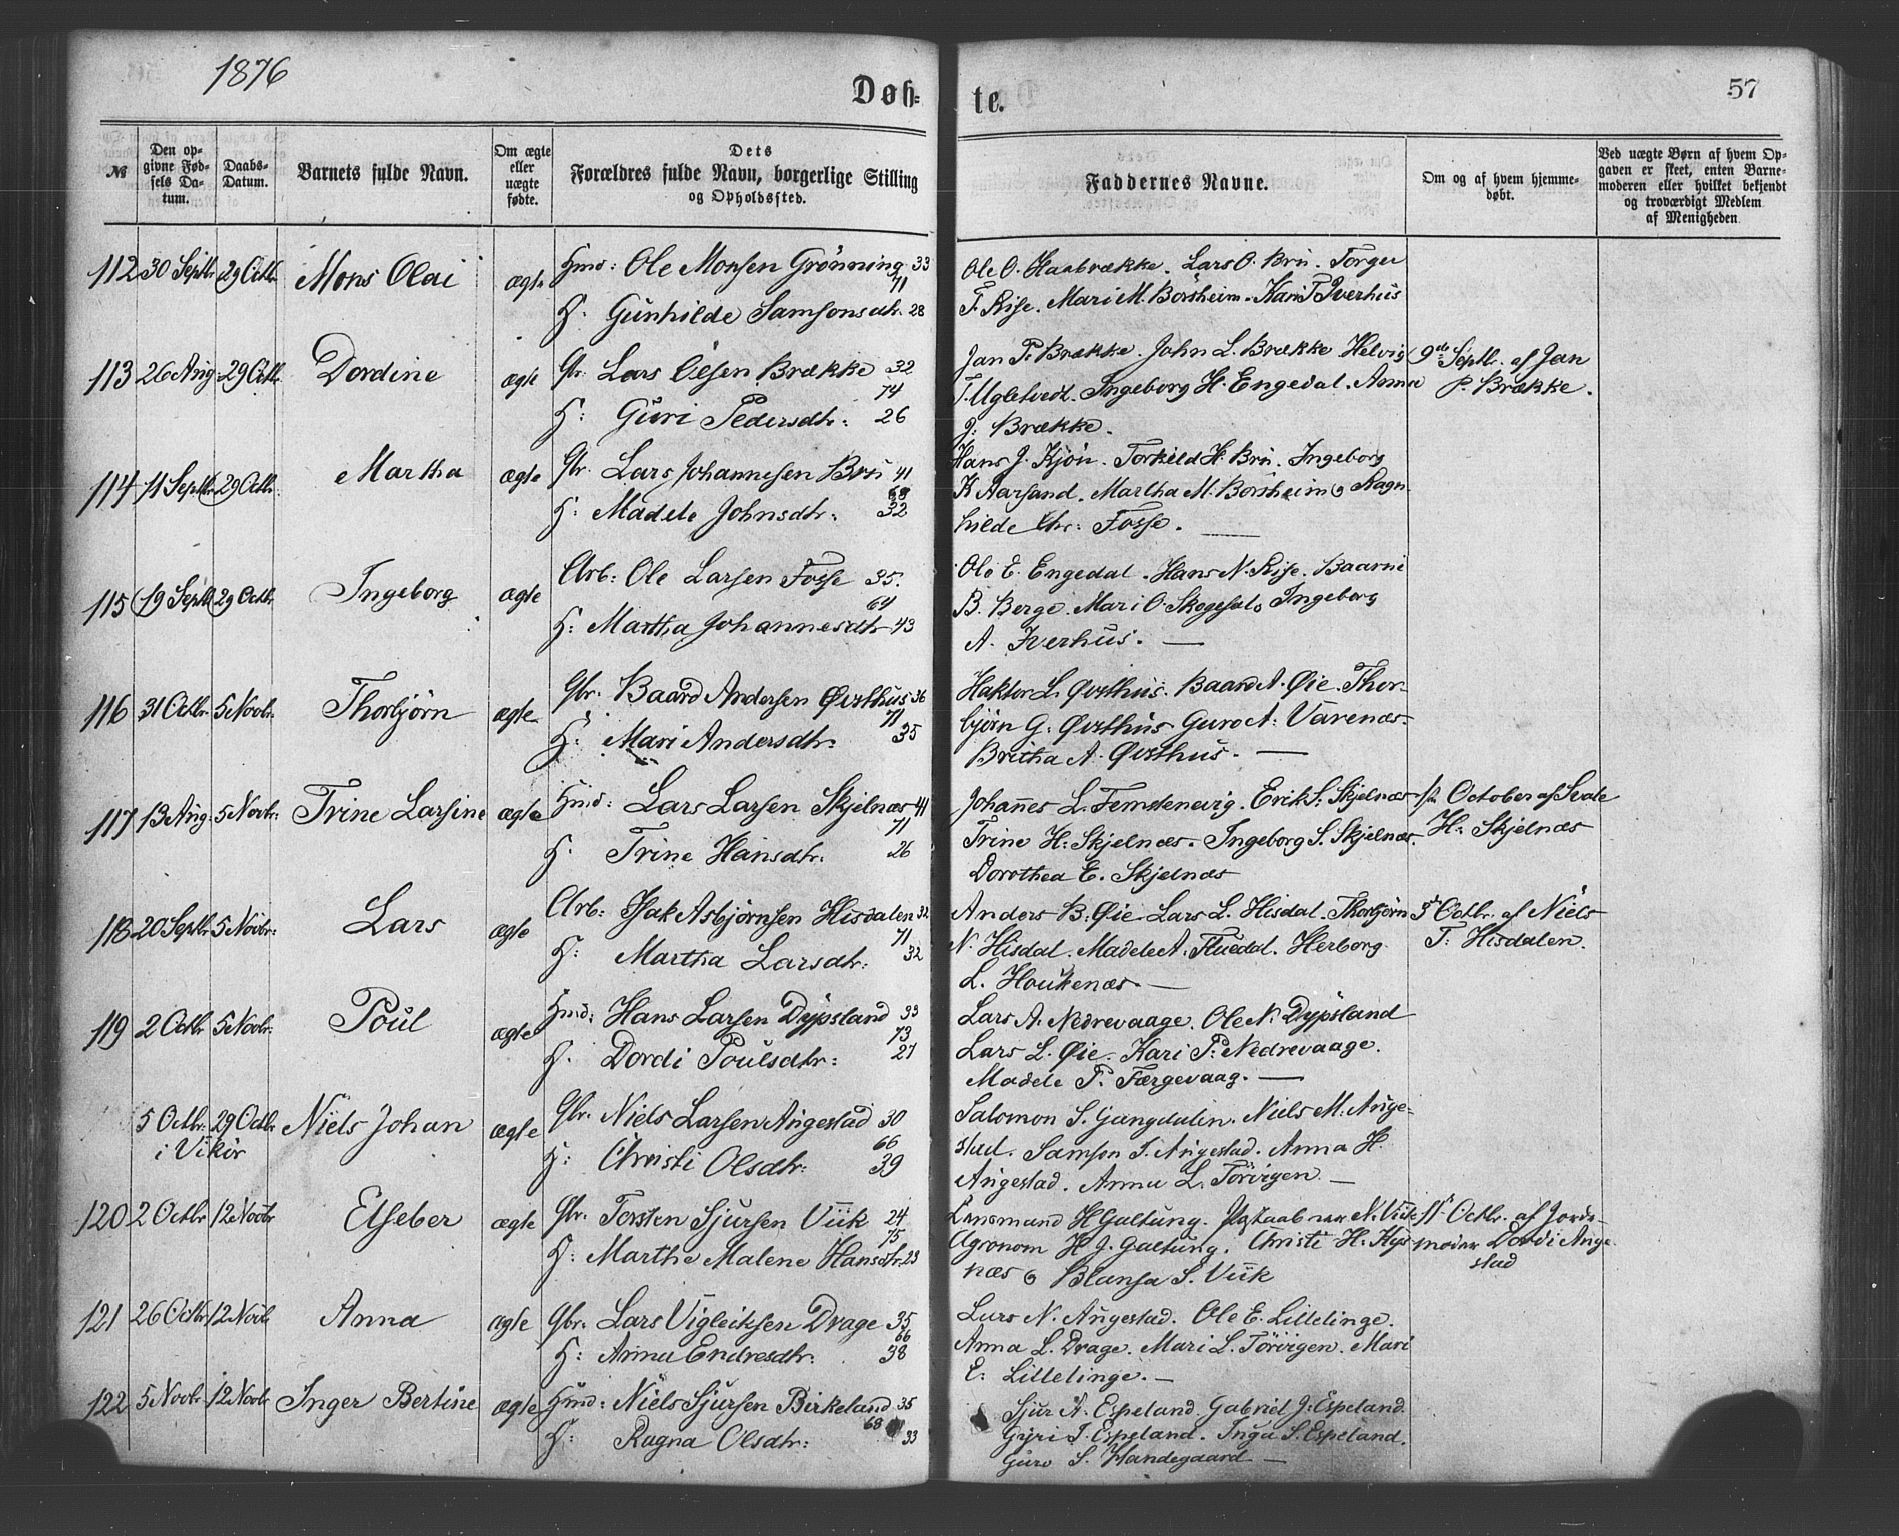 1876
Døb-
te.
57
№
Den opgivne Fødsels Datum.
Daabs-Datum.
Barnets fulde Navn.
Om ægte eller uægte fødte.
Dets Forældres fulde Navn, borgerlige Stilling og Opholdssted.
Faddernes Navne.
Om og af hvem hjemmedøbt.
Ved uægte Børn af hvem Opgaven er skeet, enten Barnemoderen eller hvilket bekjendt og troværdigt Medlem af Menigheden
112 30 Septbr 29 Octb. Mons Olai ægte Hmd: Ole Monsen Grønning 33
71
H. Gunhilde Samsonsdtr. 28
Ole O. Haabrække. Lars O. Bru. Torger
T. Rise. Mari M. Børsheim. Kari T Iverhus
113 26 Aug 29 Octb. Dordine ægte Gbr. Lars Olsen Brække 32
74
H: Guri Pedersdtr: 26
Jan P. Brække. John L. Brække Helvig
T. Ugletvedt. Ingeborg H. Engedal. Anna
J: Brække.
9de Septb. af Jan
P. Brække.
114 11 Septbr 29 Octbr. Martha ægte Gbr. Lars Johannesen Bru 41
68
H: Madele Johnsdtr. 32
Hans J. Kjøn. Torkild H. Bru. Ingeborg
K Aarsand. Martha M. Borsheim o Ragn
hilde Chr: Fosse.
115 19 Septb 29 Octbr Ingeborg ægte Arb: Ole Larsen Fosse 35.
64
H: Martha Johannesdtr 43
Ole E. Engedal. Hans N. Rise. Baarni
B. Berge. Mari O. Skogesal o Ingeborg
A. Iverhus.
116 31 Octbr. 5 Novbr. Thorbjörn ægte Gbr. Baard Andersen Øvsthus 36
71
H: Mari Andersdtr. 35
Haktor L. Øvsthus. Baard A. Øie. Thor-
bjørn G. Øvsthus Guro A: Varenæs.
Britha A. Øvsthus.
117 13 Aug. 5 Novbr: Trine Larsine ægte Hmd: Lars Larsen Skjelnæs 41
71
H. Trine Hansdtr. 26
Johannes L. Femstenevig. Erik S. Skjelnæs
Trine H: Skjelnæs. Ingeborg S. Skjelnæs.
Dorothea E. Skjelnæs
1ste October af Svale
H: Skjelnæs
118 20 Septbr 5 Novbr: Lars ægte Arb: Isak Asbjørnsen Hisdalen 32
71
H: Martha Larsdtr: 32
Anders B. Øie Lars L. Hisdal. Thorbjørn
N. Hisdal. Madele A. Fluedal. Herborg
L. Houkenæs.
5te Octbr. af Niels
T: Hisdalen.
119 2 Octbr 5 Novbr. Poul ægte Hmd: Hans Larsen Dypsland 33
73
H. Dordi Poulsdtr: 27
Lars A. Nedrevaage. Ole N. Dypsland
Lars L. Øie. Kari P: Nedrevaage.
Madele P. Færgevaag.
5 Octbr: 29 Octbr
i Vikör
Niels Johan ægte Gbr. Niels Larsen Augestad 30
66
H: Christi Olsdtr: 39
Salomon S. Gangdalen. Niels M. Auge-
stad. Samson T. Augestad. Anna H.
Augestad. Anna L. Tørvigen
120 2 Octbr 12 Novbr Elseber ægte Gbr. Torsten Sjursen Viik 24
75
H: Martha Malene Hansdtr. 23
Lensmand H Galtung. N. Viik
Agronom H J. Galtung. Christi H. Kys
næs o Blansa S. Viik
11te Octbr. af Jorde-
moder Dordi Auge
stad
121 26 Octbr 12 Novb Anna ægte Gbr. Lars Vigleiksen Drage 35
66
H: Anna Endresdtr. 38
Lars N. Augestad. Ole E. Lillelinge.
Anna L. Drage. Mari L. Tørvigen. Mari
E. Lillelinge.
122 5 Novbr 12 Novbr Inger Bertine ægte Hmd: Niels Sjursen Birkeland 35
68
H: Ragna Olsdtr: 33
Sjur A. Espeland Gabriel J. Espeland.
Gyri T. Espeland. Inga S. Espeland.
Guro S. Handegaard